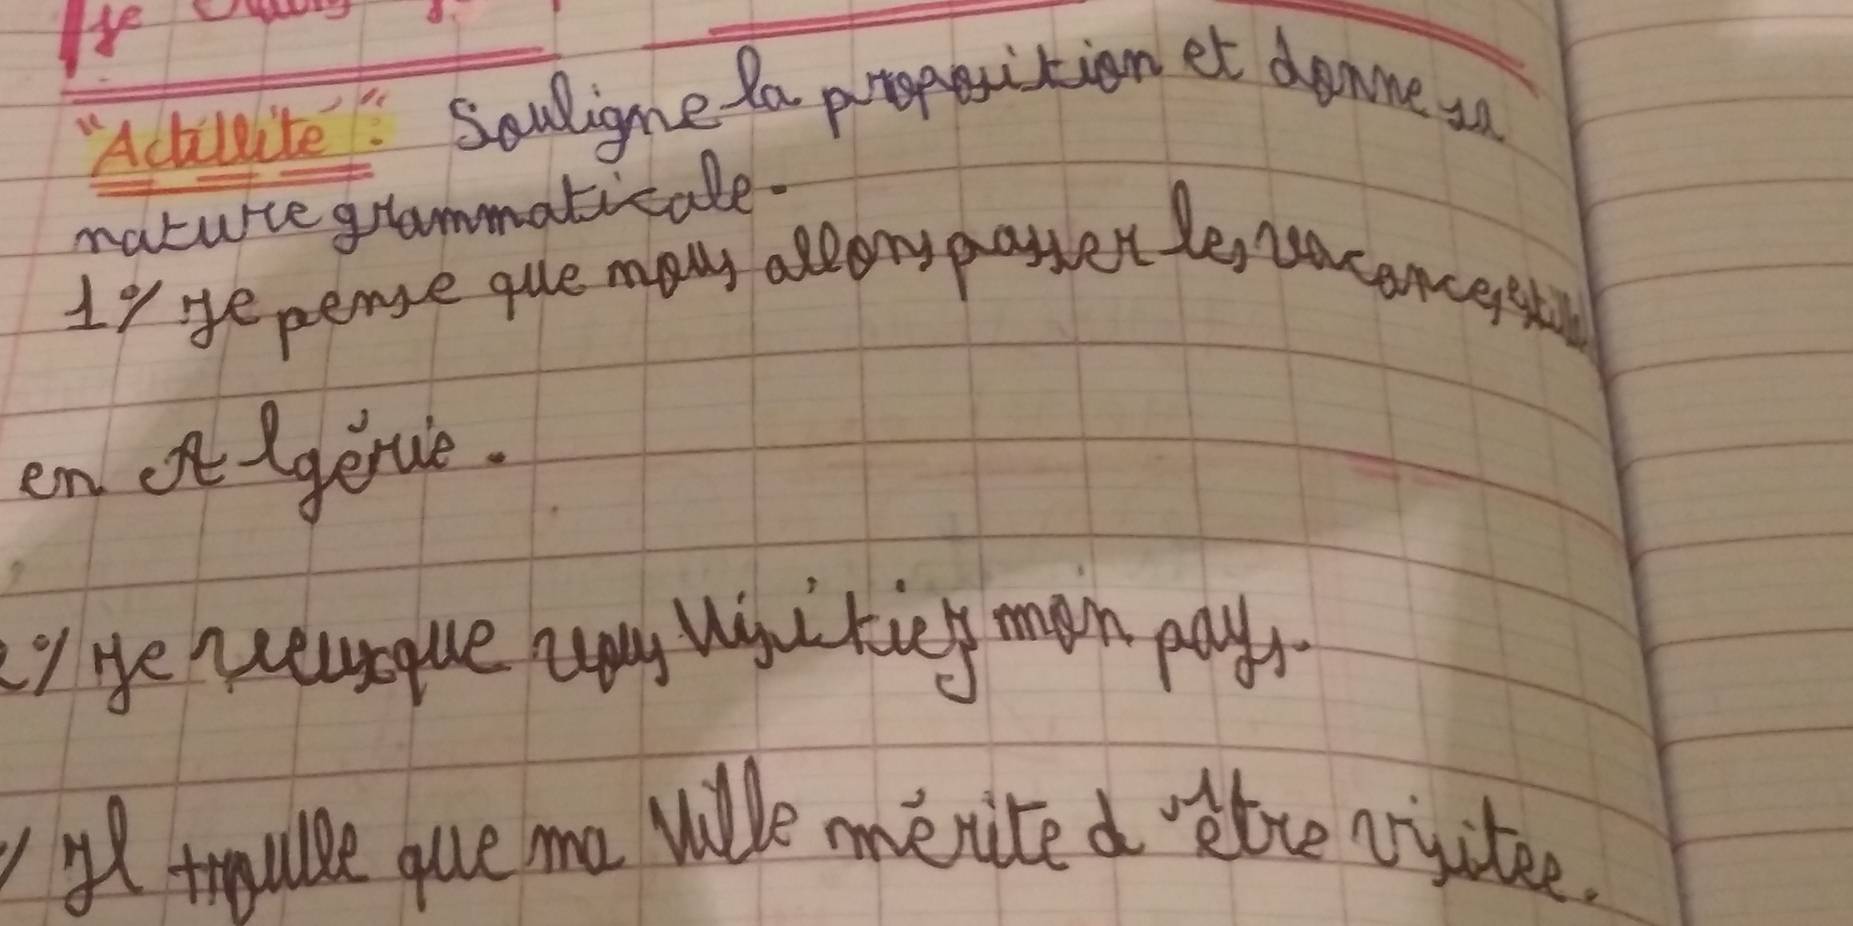 je
"Activité": Souligne la proposition et donne sa
nature grammaticale.
1°/ Je pense que nous allons passer les vacances
en Algérie.
2°/ Je veux que vous visitiez mon pays.
/ Il trouve que ma ville mérite d'être visitée.